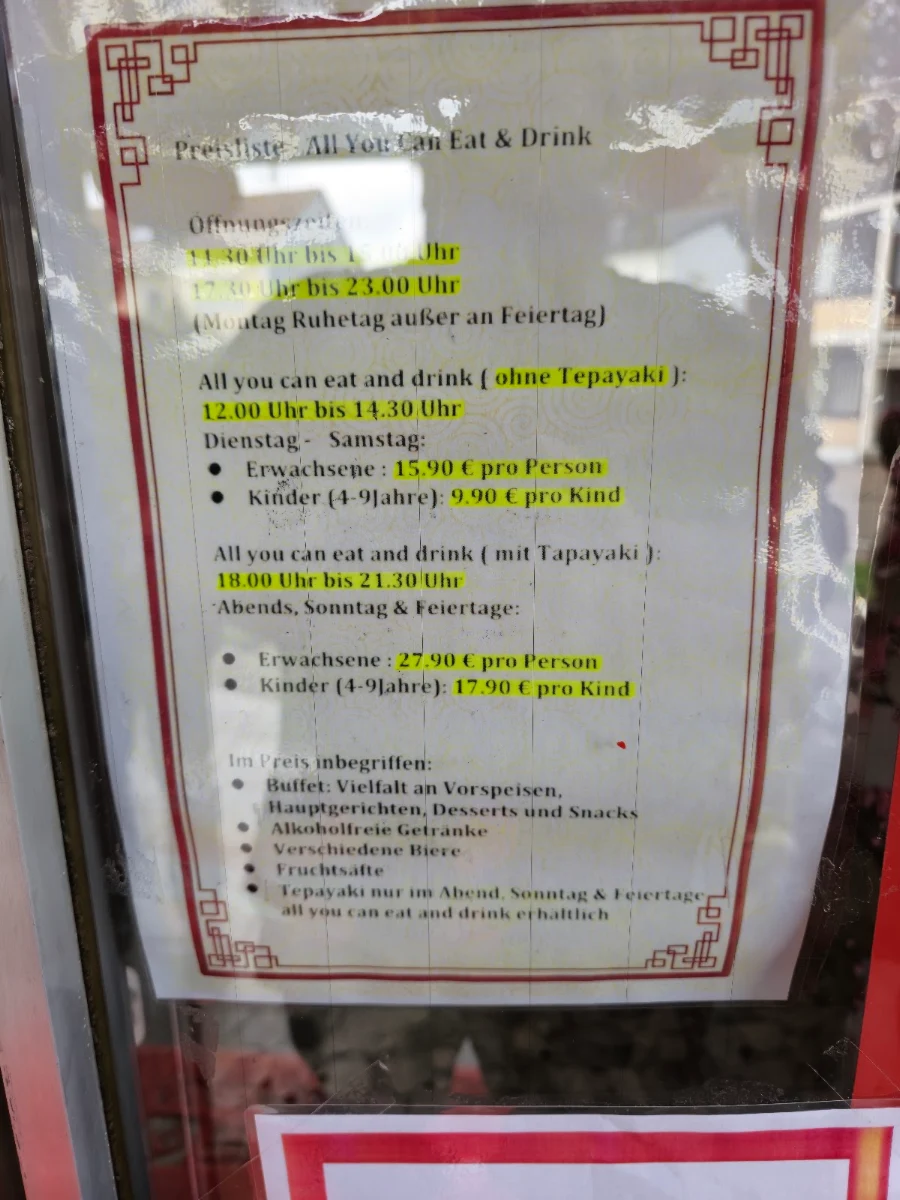 Preisliste All You Can Eat & Drink
Öffnungszeiten
11.30 Uhr bis Uhr
17.30 Uhr bis 23.00 Uhr
(Montag Ruhetag außer an Feiertag)
All you can eat and drink ( ohne Tepayaki ):
12.00 Uhr bis 14.30 Uhr
Dienstag - Samstag:
● Erwachsene : 15.90 € pro Person
● Kinder (4-9Jahre): 9.90 € pro Kind
All you can eat and drink ( mit Tapayaki ):
18.00 Uhr bis 21.30 Uhr
Abends, Sonntag & Feiertage:
● Erwachsene : 27.90 € pro Person
● Kinder (4-9Jahre): 17.90 € pro Kind
Im Preis inbegriffen:
● Buffet: Vielfalt an Vorspeisen,
Hauptgerichten, Desserts und Snacks
● Alkoholfreie Getränke
● Verschiedene Biere
● Fruchtsäfte
● Tepayaki nur im Abend, Sonntag & Feiertage
all you can eat and drink erhältlich